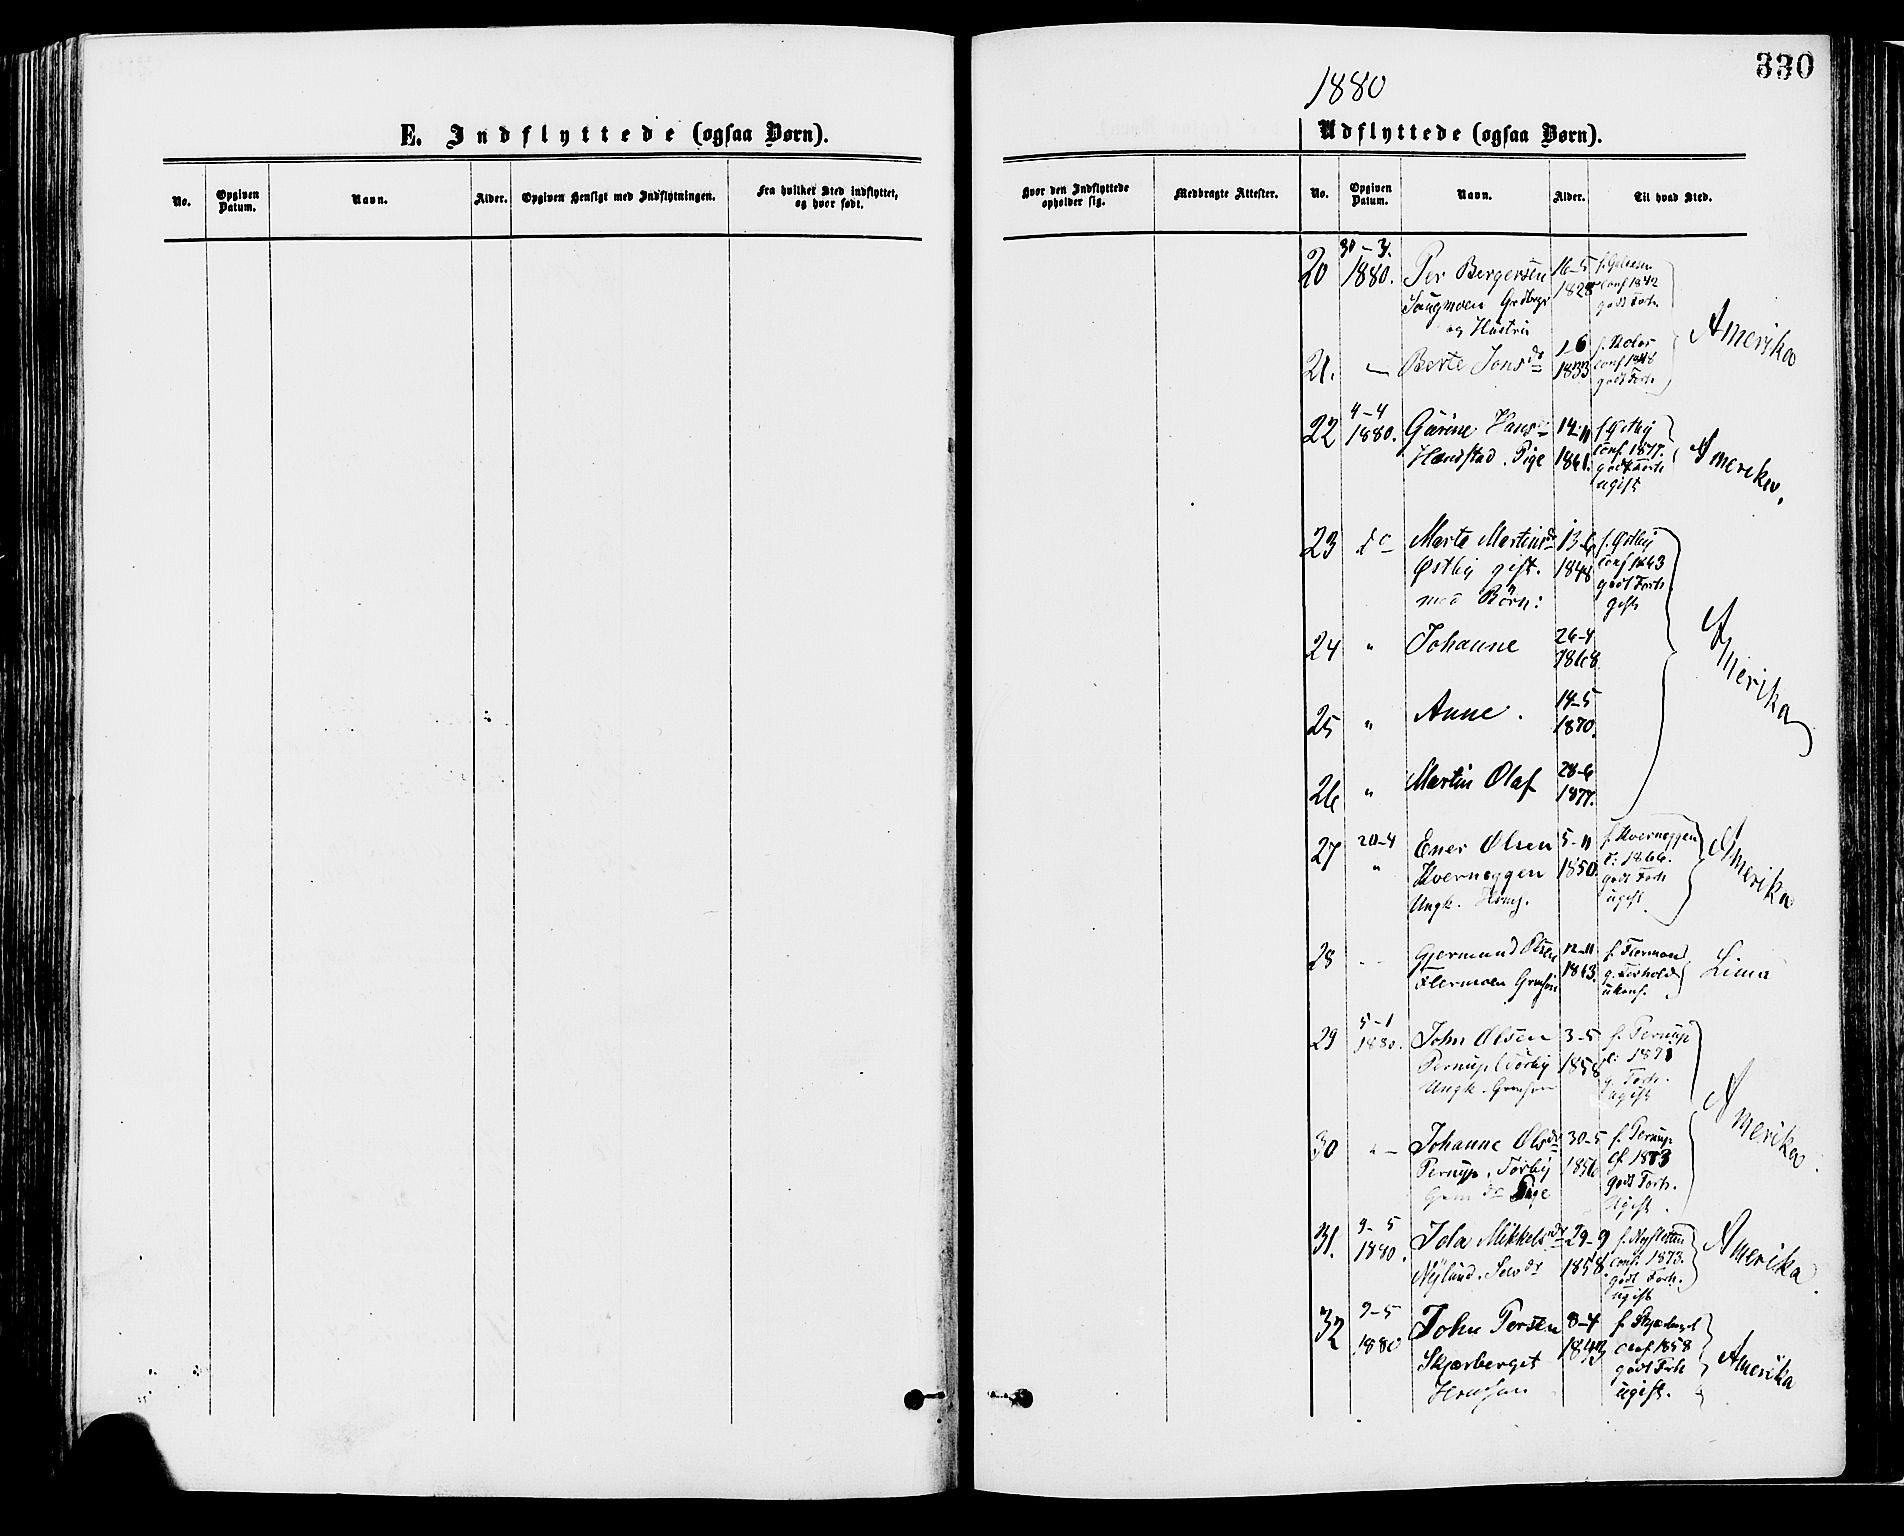 330
1880
E. Indflyttede (ogsaa Børn).
Udflyttede (ogsaa Børn).
No.
Opgiven Datum.
Navn.
Alder.
Opgiven Hensigt med Indflytningen.
Fra hvilket Sted indflyttet, og hvor født.
Hvor den Indflyttede opholder sig.
Medbragte Attester.
No.
Opgiven Datum.
Navn.
Alder.
Til hvad Sted.
20 30-3. 1880. Per Bergersen 16-5 1828
conf 1842
godt Forh.
og Hustru
Amerika
21. Berte Jonsdr 1-6 1833
conf 1848
godt Forh.
22 4-4 1880. Hansdr 14-11 1861. f. Østby
conf. 1877.
Pige godt Forh.
ugift
Amerika.
23 do Marte Martinsdr 13-6 1848 f. Østby
Østby gift. conf 1863
med Børn: godt Forh
gift
24 " Johanne 26-4 1868
Amerika
25 " Anne. 14-5 1870.
26 " Martin Olaf 28-6 1877.
27 20-4 " Ener Olsen 5-11 1850 f. Kverneggen
Kverneggen c: 1866.
Ungk. godt Forh
ugift
Amerika
28 Gjermund Olsen 12-11 1863.
Flermoen
g. Forhold
ukonf.
Lima
29 5-1 1880. John Olsen 3-5 1858 f. Pernup
Pernup Törby
Ungk. g. Forh.
ugift
Amerika
30 Johanne Olsdr 30-5 1856 f. Pernup
Pernup. Törby cf. 1873
Pige godt Forh.
Ugift.
31. 9-5 1880. Mikkelsdr 29-9 1858.
Nylund. conf. 1873.
godt Forh.
ugift
Amerika
32 9-5 1880 John Persen 8-4 1843
Skjærberget conf 1858
godt Forh
ugift.
Amerika